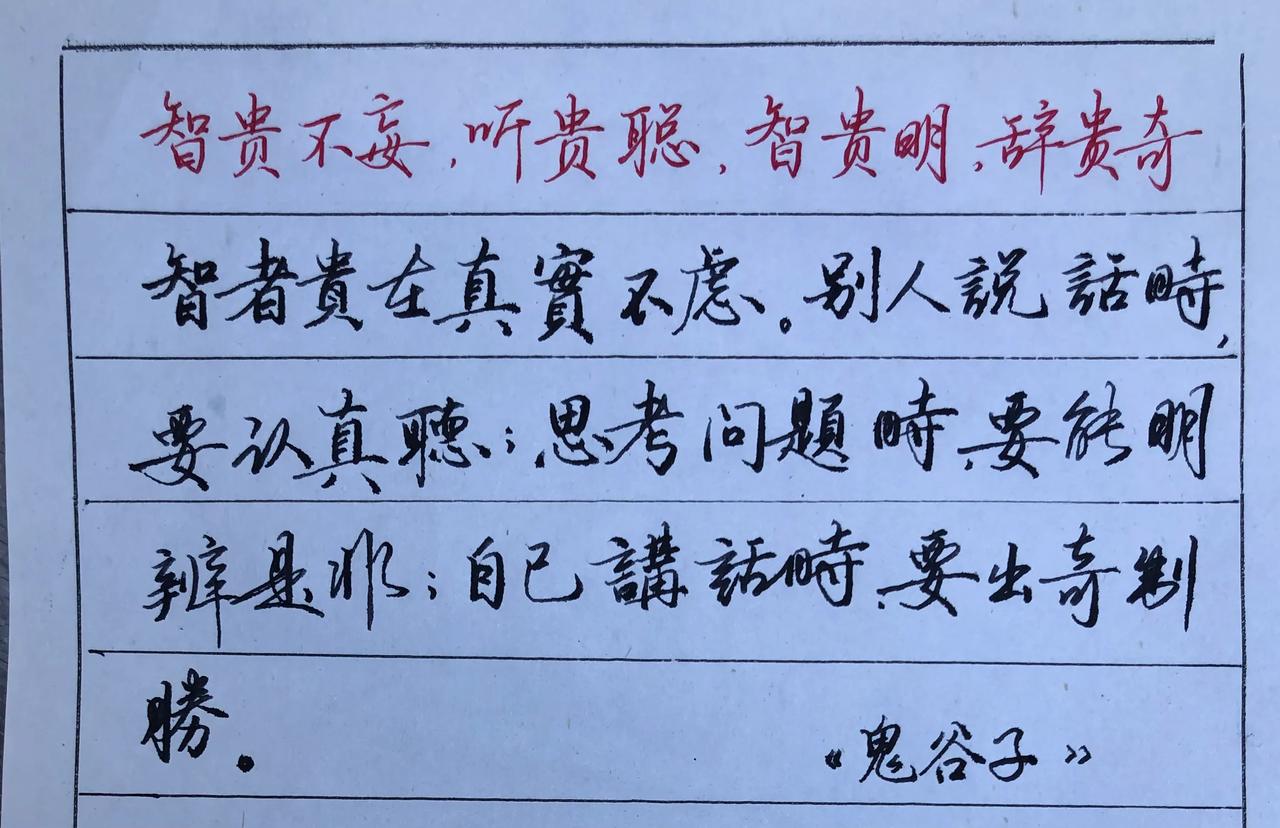 智贵不妄,听贵聪,智贵明,辞贵奇
智者貴在真實不虑。别人説話時,
要认真聽;思考问題時,要能明
辨是非;自己講話時,要出奇制
勝。
《鬼谷子》